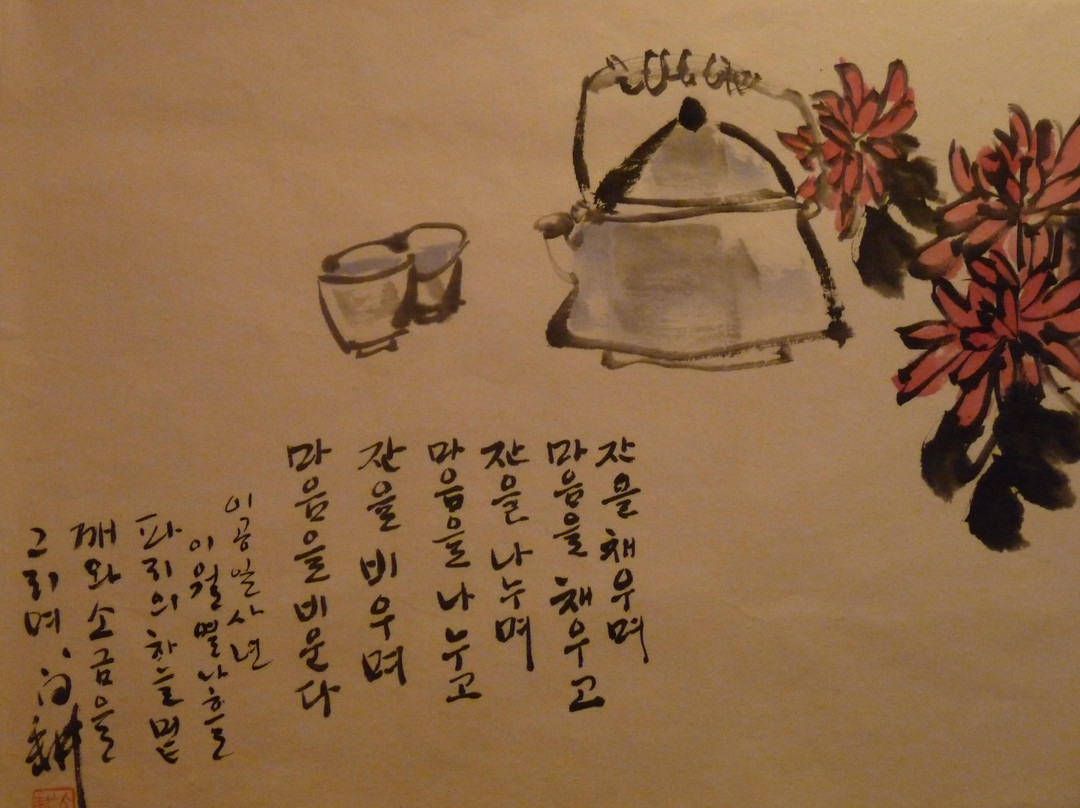 잔을 채우며
마음을 채우고
잔을 나누며
마음을 나누고
잔을 비우며
마음을 비운다
이공일사년
이월 열나흘
파리의 하늘 밑
깨와 소금을
그리며